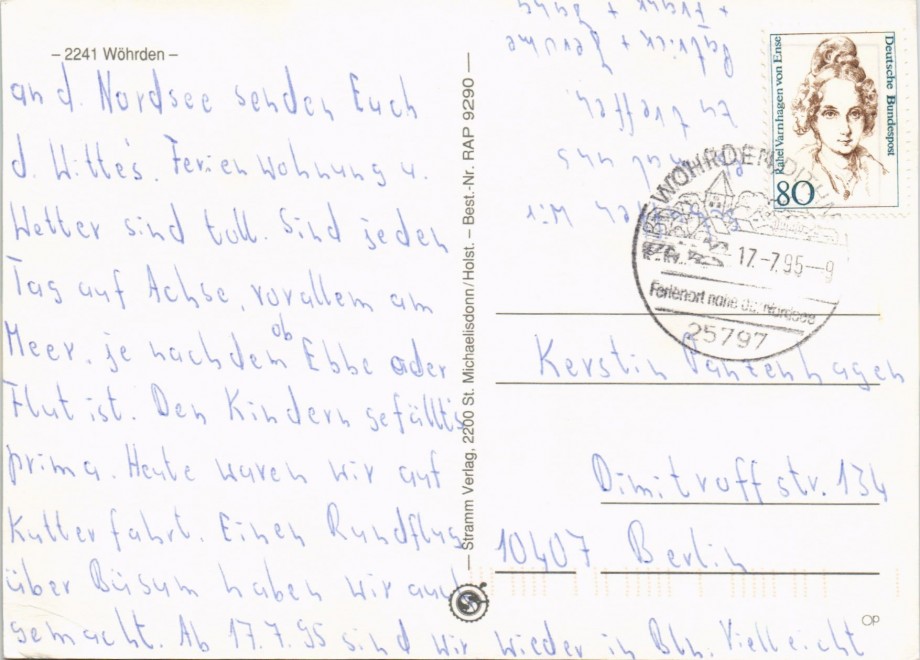 – 2241 Wöhrden –
an d. Nordsee senden Euch
d. Witte's. Ferienwohnung u.
Wetter sind toll. Sind jeden
Tag auf Achse, vor allem am
Meer, je nachdem ob Ebbe oder
Flut ist. Den Kindern gefällt's
prima. Heute waren wir auf
Kutterfahrt. Einen Rundflug
über Büsum haben wir auch
gemacht. Ab 17.7.95 sind wir wieder in Bln. Vielleicht
wir
mal uns
zu treffen.
Patrick +
+ Frank +
– Stramm Verlag, 2200 St. Michaelisdonn/Holst. – Best.-Nr. RAP 9290 –
Deutsche Bundespost
Rahel Varnhagen von Ense
80
WÖHRDEN
17.-7.95--9
Ferienort nahe der Nordsee
25797
Kerstin Panzenhagen
Dimitroffstr. 134
10407 Berlin
OP